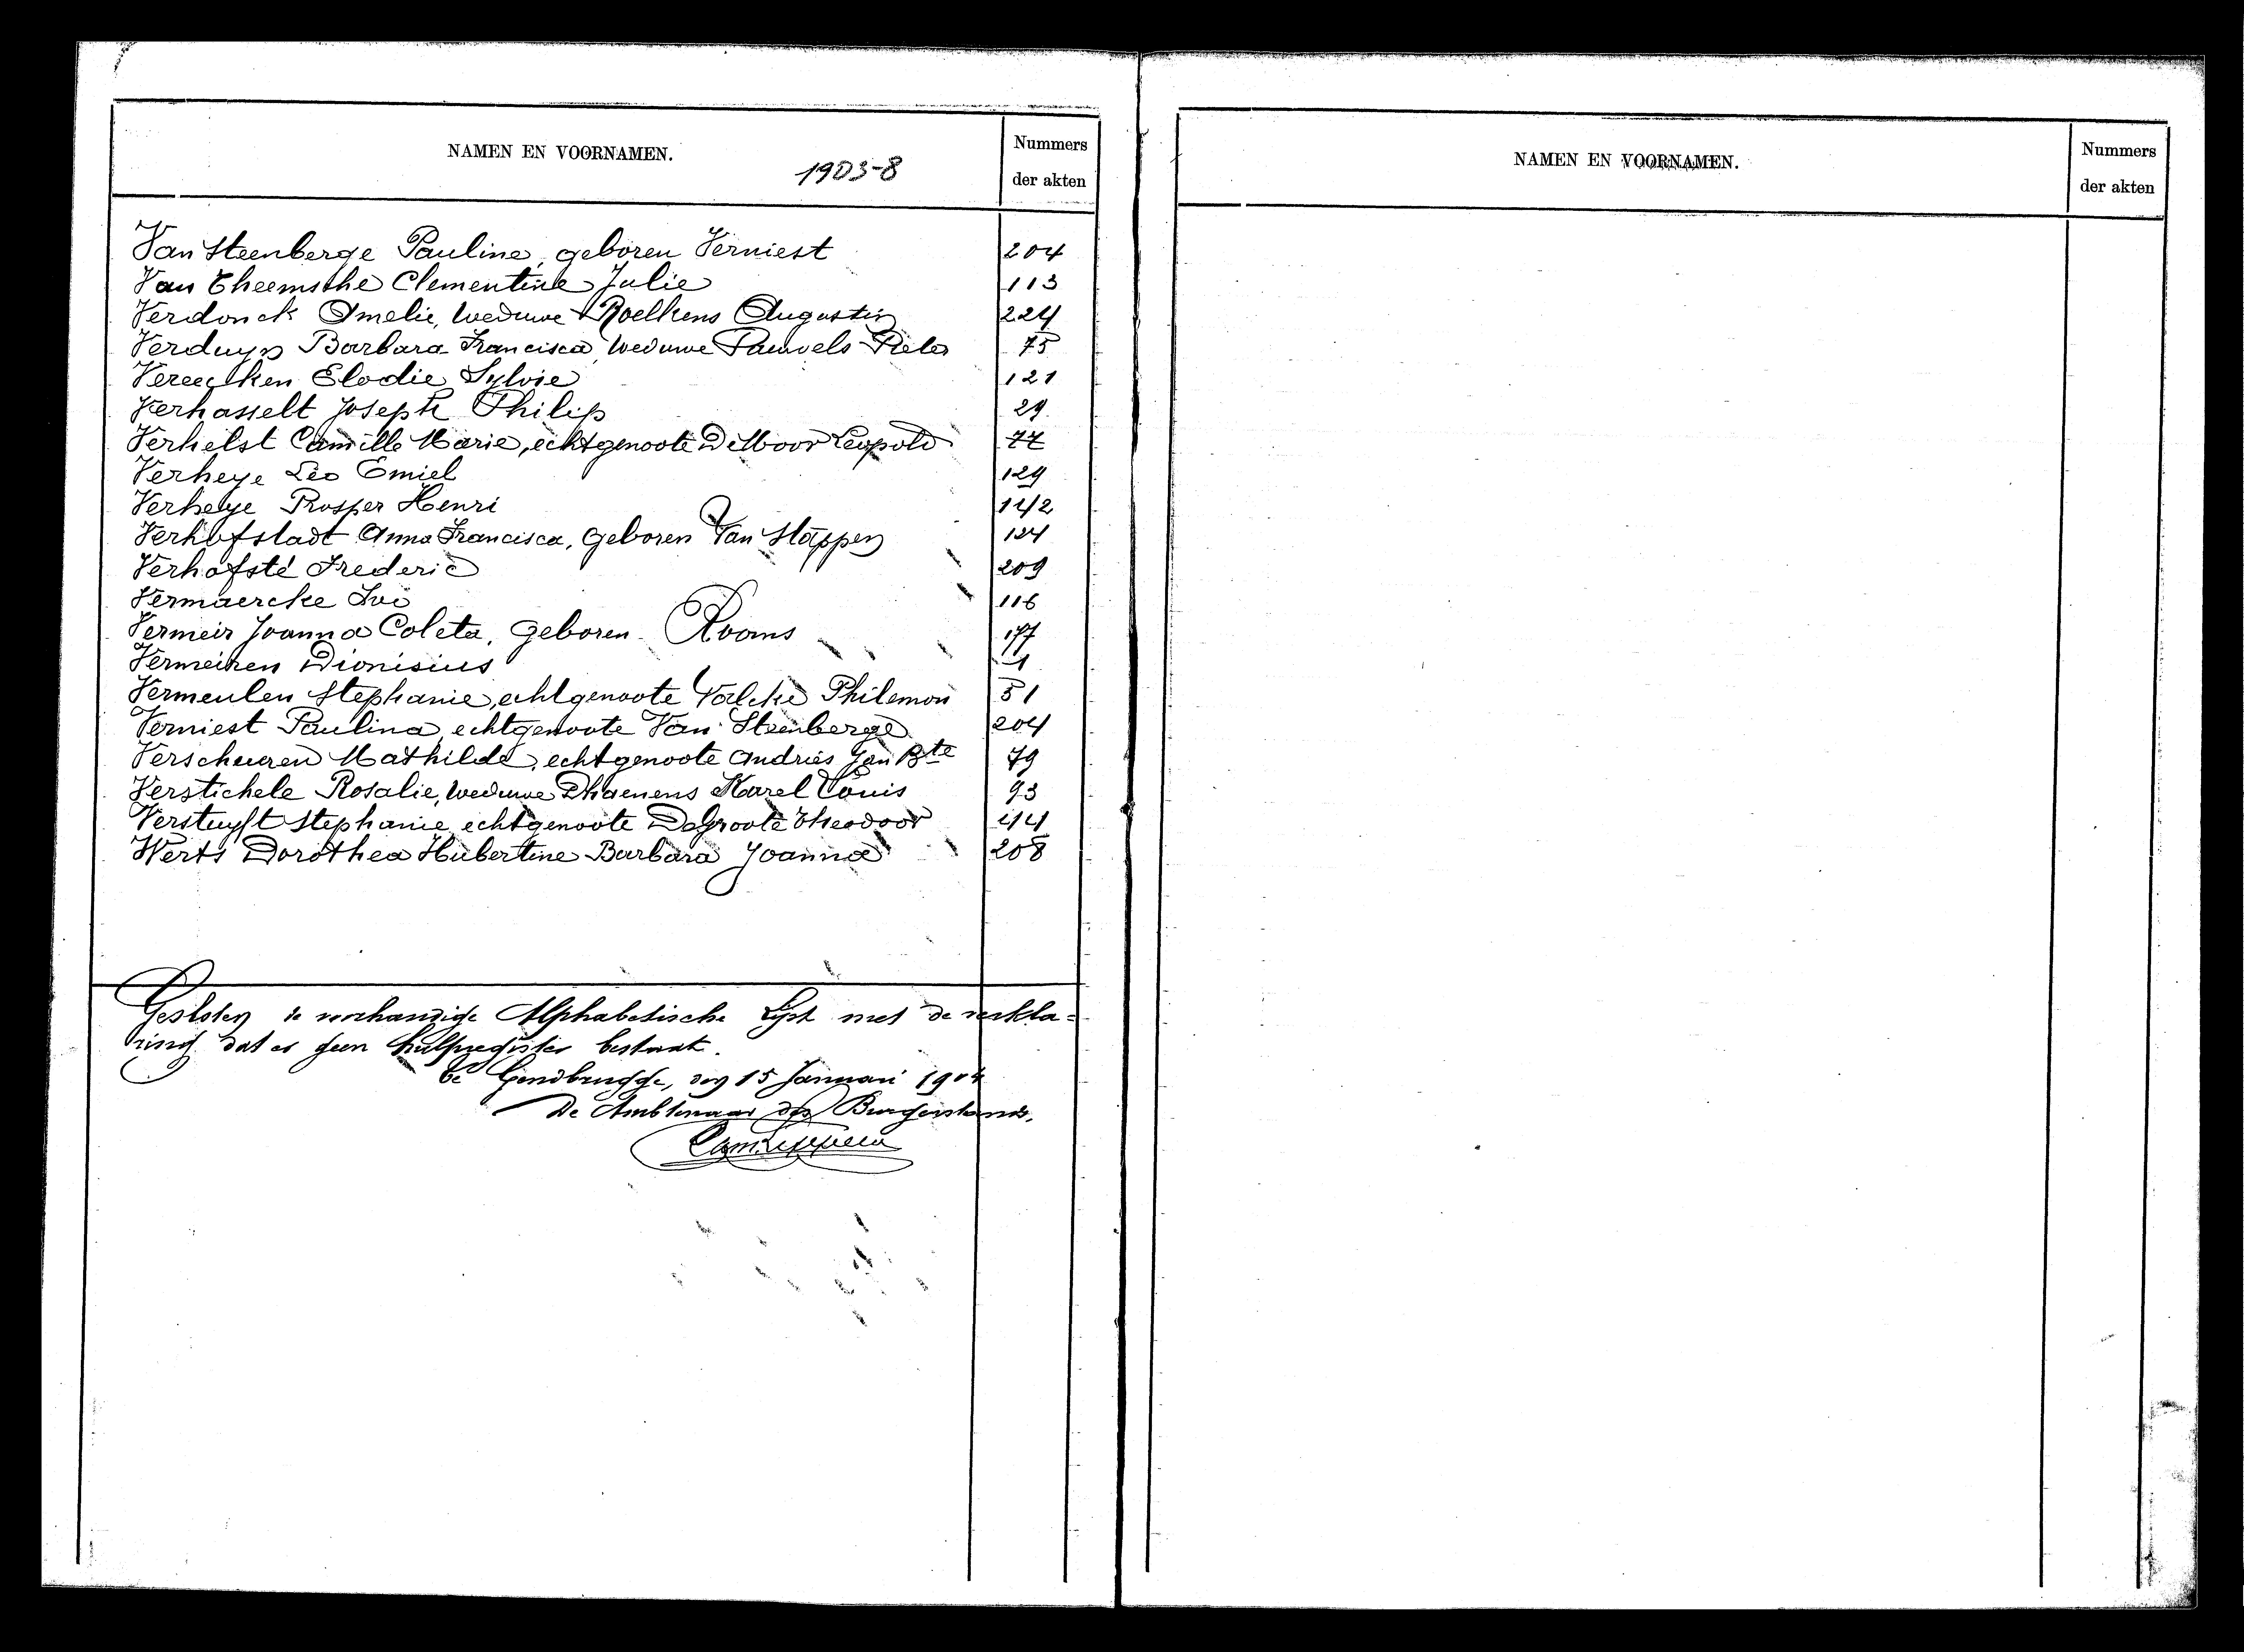 NAMEN EN VOORNAMEN.
1903-8
Nummers
der akten
Van Steenberge Pauline, geboren Verniest 204
Van Theemsche Clementine Julie 113
Verdonck Amelie, weduwe Roelkens Augustin 224
Verduyn Barbara Francisca, weduwe Pauwels Pieter 75
Vereecken Elodie Sylvie 121
Verhasselt Joseph Philip 29
Verhelst Camille Marie, echtgenoote De Moor Leopold 77
Verheye Leo Emiel 129
Verheye Prosper Henri 142
Verhofstadt Anna Francisca, geboren Van Stappen 124
Verhofsté Frederic 209
Vermaercke Ivo 116
Vermeir Joanna Coleta, geboren Rooms 177
Vermeiren Dionisius
Vermeulen Stephanie, echtgenoote Valcke Philemon 51
Verniest Paulina, echtgenoote Van Steenberge 204
Verscheuren Mathilde, echtgenoote Andries Jan Bte 79
Verstichele Rosalie, weduwe Dhaenens Karel Louis 93
Verstuyft Stephanie echtgenoote De Groote Theodoor
Werts Dorothea Hubertine Barbara Joanna 208
Gesloten de voorhandige Alphabetische Lijst met de verkla=
ring dat er geen hulpregister bestaat.
te Gendbrugge, den 15 Januari 1904
De Ambtenaar des Burgerstands,
NAMEN EN VOORNAMEN.
Nummers
der akten